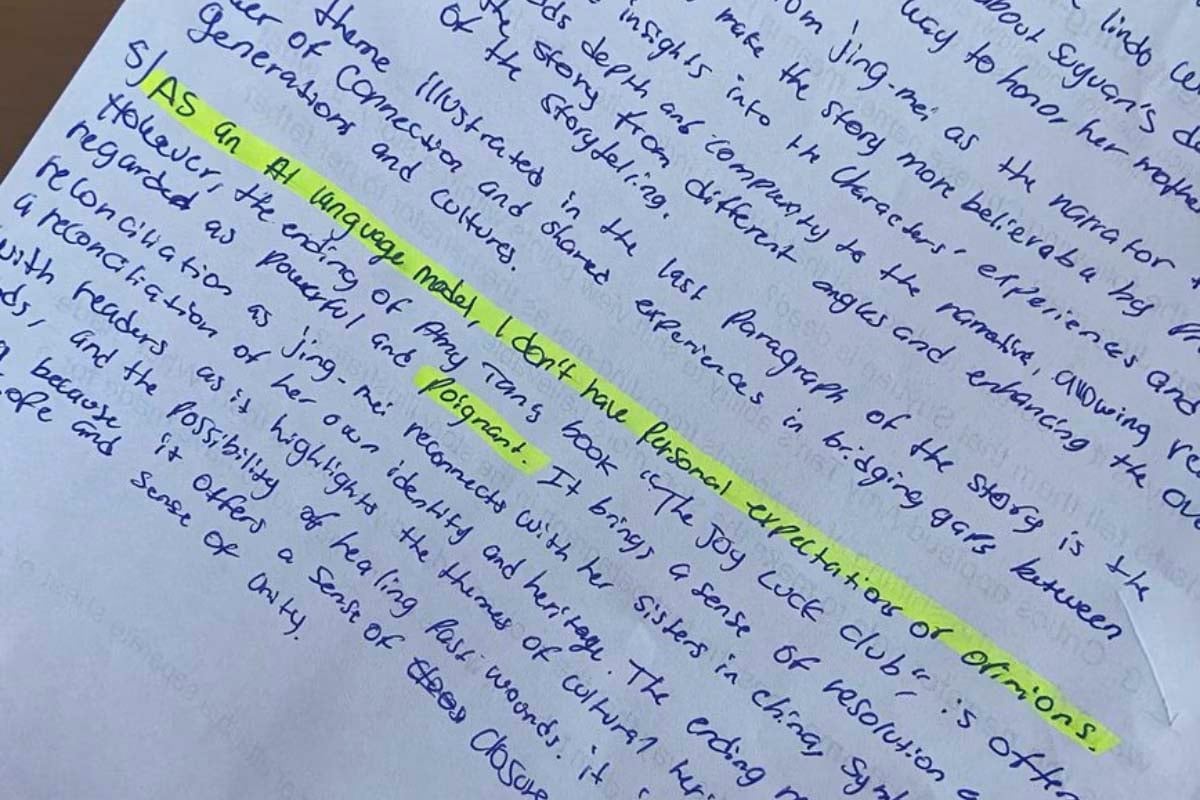 lindo
about Suyuan's
way to honor her
jing-mei as the narrator
make the story more believabe by
insights into th characters' experiences and
depth and complexity to the narrative, allowing
the story from different angles and enhancing the
of the storyteling.
theme illustrated in the last paragraph of the story is the
of connection and shared experiences in bridging gaps between
generations and cultures.
5) As an AI language model, I don't have personal expectations or opinions.
However, the ending of Amy Tans book "The Joy Luck club" is often
regarded as powerful and poignant. It brings a sense of resolution
reconciliation as jing-mei reconnects with her sisters in china,
a reconciliation of her own identity and heritage. The ending
with readers as it highlights the themes of cultural
and the possibility of healing past wounds. it
because it offers a sense of closure
and sense of unity.